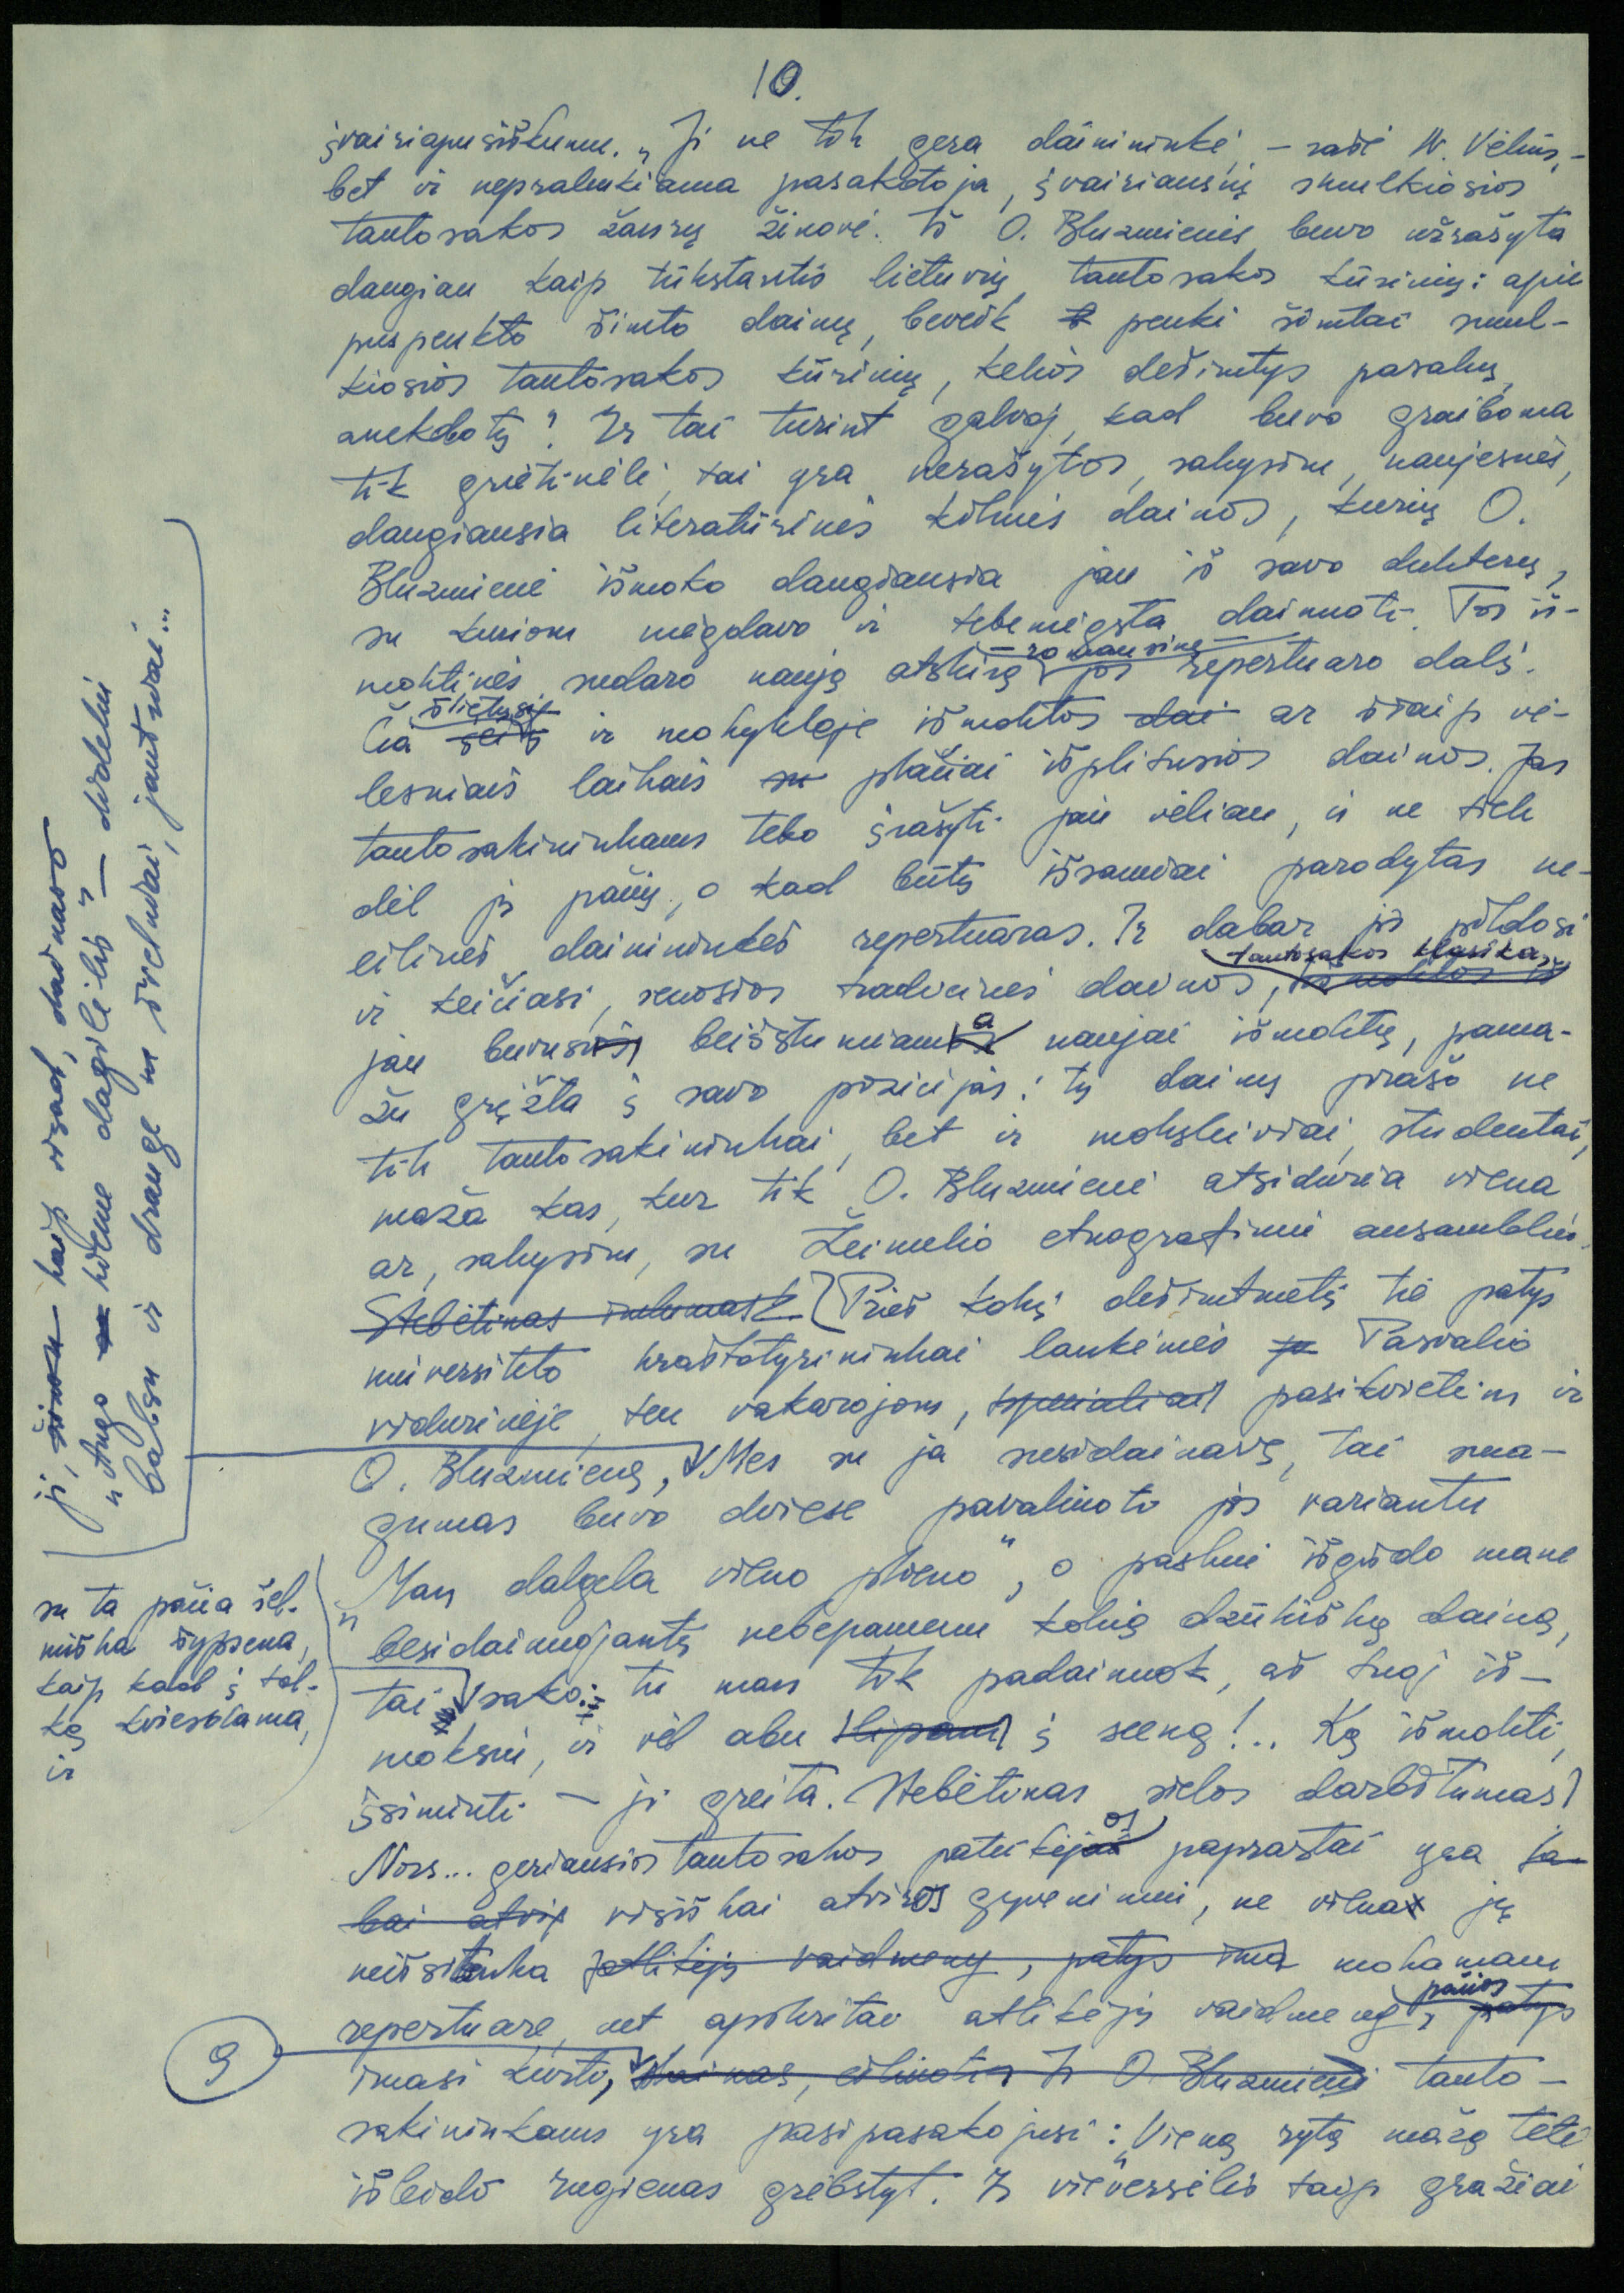 10.
įvairiapusiškumu. „Ji ne tik gera dainininkė, – rašė N. Vėlius, –
bet ir nepralenkiama pasakotoja, įvairiausių smulkiosios
tautosakos žanrų žinovė. Iš O. Bluzmienės buvo užrašyta
daugiau kaip tūkstantis lietuvių tautosakos kūrinių: apie
puspenkto šimto dainų, beveik penki šimtai smul-
kiosios tautosakos kūrinių, kelios dešimtys pasakų,
anekdotų". Ir tai turint galvoj, kad buvo graiboma
tik grietinėlė, tai yra nerašytos, sakysim, naujesnės,
daugiausia literatūrinės kilmės dainos, kurių O.
Bluzmienė išmoko daugiausia jau iš savo dukterų,
su kuriom mėgdavo ir tebemėgsta dainuoti. Tos iš-
moktinės sudaro naują atskirą – romansinę – jos repertuaro dalį.
Čia išlietusių ir mokykloje išmoktos dai ar šiaip vė-
lesniais laikais su plačiai išplitusios dainos. Jas
tautosakininkams teko įrašyti jau vėliau, ir ne tiek
dėl jų pačių, o kad būtų išsamiai parodytas ne-
eilinės dainininkės repertuaras. Ir dabar jis pildosi
ir keičiasi, senosios tradicinės dainos, tautosakos klasika,
jau buvusi beišstumiama naujai išmoktų, pama-
žu grįžta į savo pozicijas: tų dainų prašo ne
tik tautosakininkai, bet ir moksleiviai, studentai,
maža kas, kur tik O. Bluzmienė atsiduria viena
ar, sakysim, su Žeimelio etnografiniu ansambliu.
Stebėtinas imlumas! Prieš kokį dešimtmetį tie patys
universiteto kraštotyrininkai lankėmės Pasvalio
vidurinėje, ten vakarojom, specialiai pasikvietėm ir
O. Bluzmienę, Mes su ja susidainavę, tai sma-
gumas buvo dviese pavaliuoto jos variantu
„Man dalgela vieno plieno", o paskui išgirdo mane
besidainuojantį nebepamenu kokią dzūkišką dainą,
tai sako: tu man tik padainuok, aš tuoj iš-
moksiu, ir vėl abu lipam į sceną!.. Ką išmokti,
įsiminti – ji greita. Stebėtinas sielos darbštumas!
Nors... geriausios tautosakos pateikėjos paprastai yra la-
bai atvir visiškai atviros gyvenimui, ne viena jų
neišsitenka atlikėjų vaidmeny, patys ima mokamam
repertuare, net apskritai atlikėjų vaidmeny, pačios
imasi kurti, dainas, eiliuoti. Ir O. Bluzmienė tauto-
sakininkams yra pasipasakojusi: „Vieną rytą mažą tėtė
išleido rugienas grėbstyt. Ir vieversėlis taip gražiai
ji, žinau kaip visad, dainavo
„Augo kieme lagilėlis" – dideliu
balsu ir drauge su švelniai, jautriai...
su ta pačia šel-
miška šypsena,
kaip kad į tal-
ką kviesdama,
ir
9